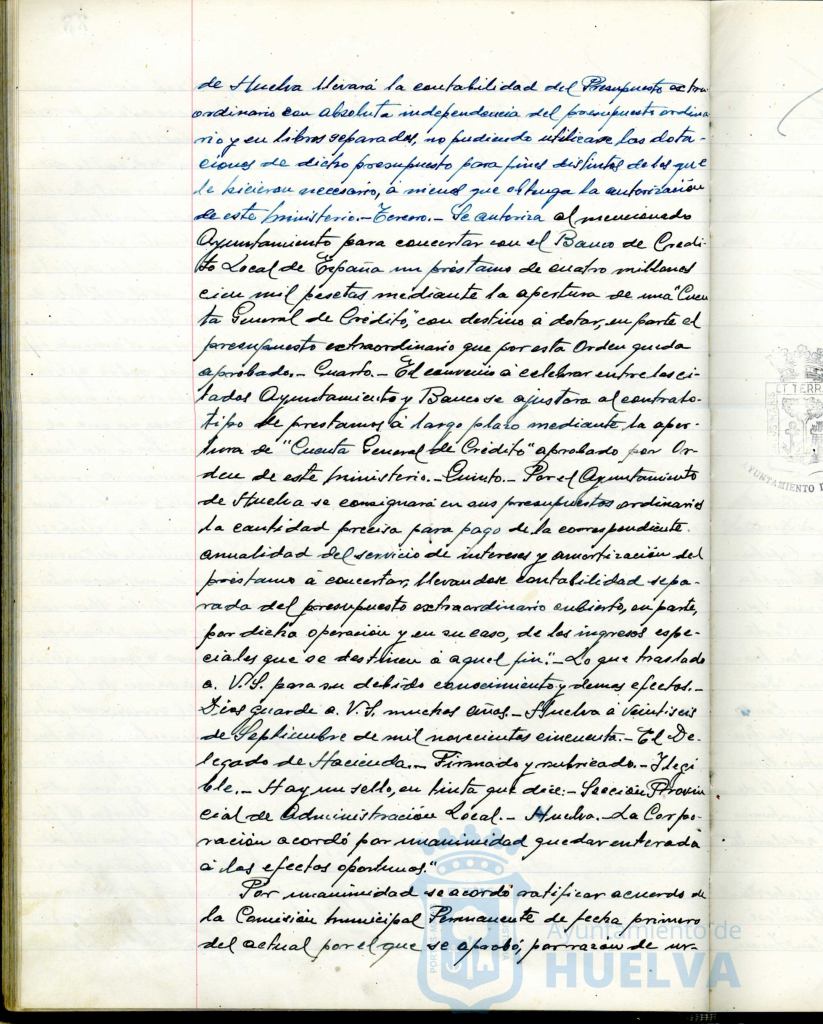 de Huelva llevará la contabilidad del Presupuesto extra
ordinario con absoluta independencia del presupuesto ordina
rio y en libros separados, no pudiendo utilizarse las dota-
ciones de dicho presupuesto para fines distintos de los que
le hicieron necesario, á menos que obtenga la autorización
de este Ministerio.- Tercero.- Se autoriza al mencionado
Ayuntamiento para concertar con el Banco de Credi-
to Local de España un préstamo de cuatro millones
cien mil pesetas mediante la apertura de una "Cuen
ta General de Crédito", con destino á dotar, en parte el
presupuesto extraordinario que por esta Orden queda
aprobado.- Cuarto.- El convenio á celebrar entre los ci-
tados Ayuntamiento y Banco se ajustará al contrato-
tipo de prestamos á largo plazo mediante la aper-
tura de "Cuenta General de Crédito" aprobado por Or-
den de este Ministerio.- Quinto.- Por el Ayuntamiento
de Huelva se consignará en sus presupuestos ordinarios
la cantidad precisa para pago de la correspondiente
anualidad del servicio de intereses y amortización del
préstamo á concertar, llevandose contabilidad sepa-
rada del presupuesto extraordinario cubierto, en parte,
por dicha operación y en su caso, de los ingresos espe-
ciales que se destinen á aquel fin".- Lo que traslado
a. V.S. para su debido conocimiento y demas efectos.-
Dios guarde a. V.S. muchos años.- Huelva á veintiseis
de Septiembre de mil novecientos cincuenta.- El De-
legado de Hacienda.- Firmado y rubricado.- Ilegi
ble.- Hay un sello, en tinta que dice:- Sección Provin
cial de Administración Local.- Huelva.- La Corpo-
ración acordó por unanimidad quedar enterada
á los efectos oportunos."
Por unanimidad se acordó ratificar acuerdo de
la Comisión Municipal Permanente de fecha primero
del actual por el que se aprobó, por razón de ur-
ET TERR
AYUNTAMIENTO D
Ayuntamiento de
HUELVA